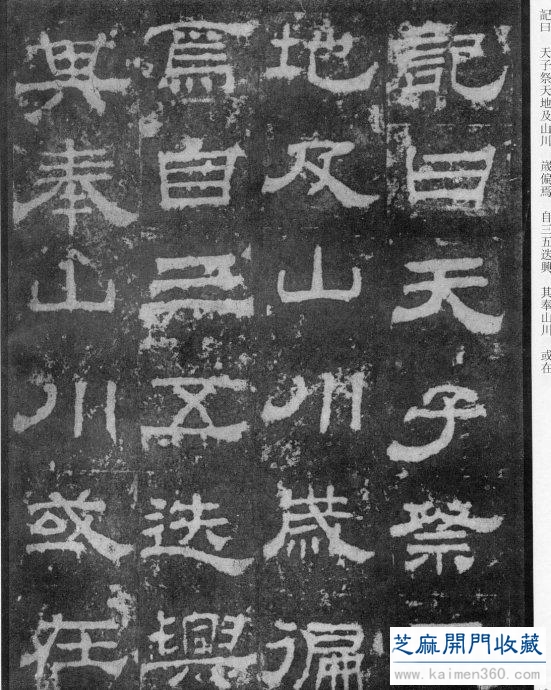 記曰　天子祭天地及山川　歲徧焉　自三五迭興　其奉山川　或在
記曰天子祭
地及山川歲徧
焉自三五迭興
其奉山川或在
芝麻開門收藏
www.kaimen360.com